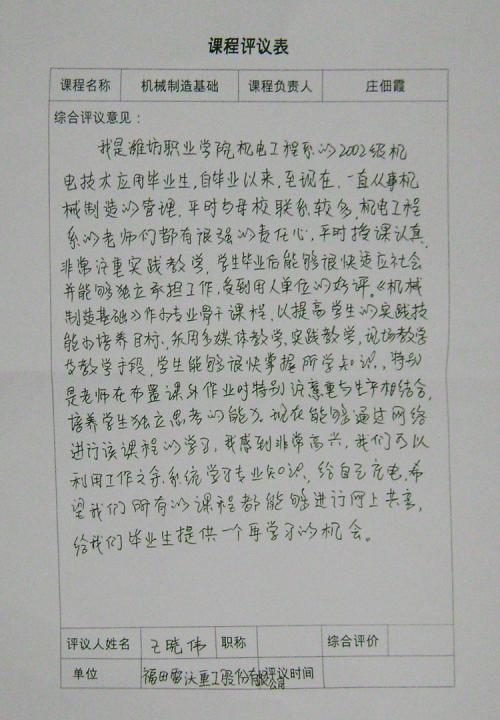 课程评议表
课程名称 机械制造基础 课程负责人 庄佃霞
综合评议意见：
我是潍坊职业学院机电工程系的2002级机
电技术应用毕业生，自毕业以来，至现在，一直从事机
械制造的管理，平时与母校联系较多，机电工程
系的老师们都有很强的责任心，平时授课认真，
非常注重实践教学，学生毕业后能够很快适应社会
并能够独立承担工作，受到用人单位的好评。《机械
制造基础》作为专业骨干课程，以提高学生的实践技
能为培养目标，采用多媒体教学，实践教学，现场教学
等教学手段，学生能够很快掌握所学知识，特别
是老师在布置课外作业时特别注意与生产相结合，
培养学生独立思考的能力。现在能够通过网络
进行该课程的学习，我感到非常高兴，我们可以
利用工作之余，系统学习专业知识，给自己充电，希
望我们所有的课程都能够进行网上共享，
给我们毕业生提供一个再学习的机会。
评议人姓名 王晓伟 职称 综合评价
单位 福田雷沃重工股份有限公司 评议时间